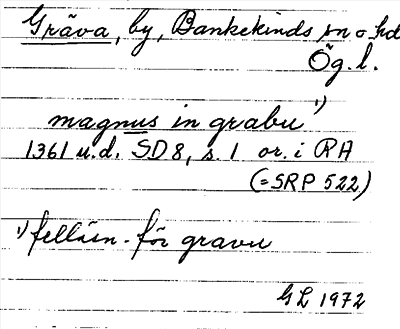 Gräva, by, Bankekinds sn o hd
Ög. l.
magnus in grabu ¹)
1361 u.d. SD 8, s. 1 or. i RA
(= SRP 522)
¹) felläsn. för gravu
GL 1972